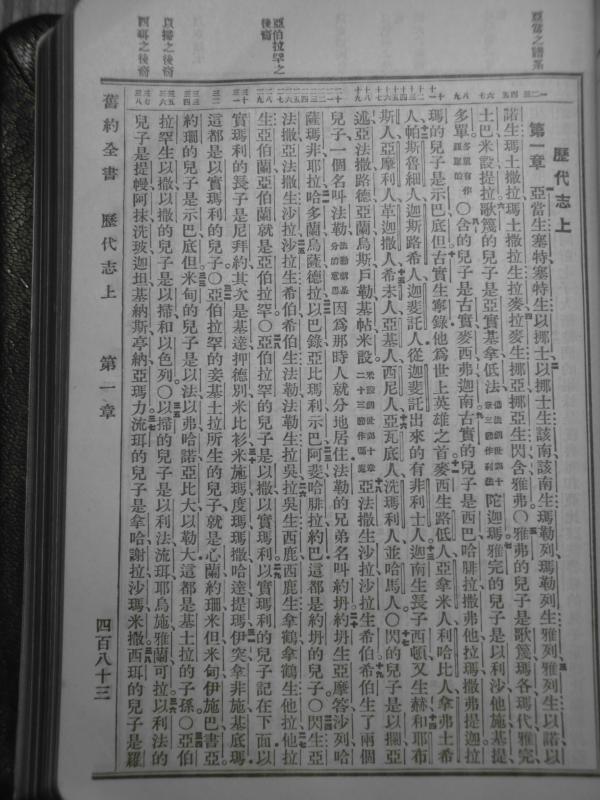 亞當之譜系
亞伯拉罕之
後裔
以掃之後裔
西珥之後裔
歷代志上
第一章 亞當生塞特塞特生以挪士以挪士生該南該南生瑪勒列瑪勒列生雅列雅列生以諾以
諾生瑪土撒拉瑪土撒拉生拉麥拉麥生挪亞挪亞生閃含雅弗○雅弗的兒子是歌篾瑪各瑪代雅完
土巴米設提拉歌篾的兒子是亞實基拿低法陀迦瑪雅完的兒子是以利沙他施基提
多單多單有作羅單的○含的兒子是古實麥西弗迦南古實的兒子是西巴哈腓拉撒弗他拉瑪撒弗提迦拉
瑪的兒子是示巴底但古實生寧錄他爲世上英雄之首麥西生路低人亞拿米人利哈比人拿弗土希
人帕斯魯細人迦斯路希人迦斐託人從迦斐託出來的有非利士人迦南生長子西頓又生赫和耶布
斯人亞摩利人革迦撒人希未人亞基人西尼人亞瓦底人洗瑪利人並哈馬人○閃的兒子是以攔亞
述亞法撒路德亞蘭烏斯戶勒基帖米設米設創世記第十章二十三節作瑪施亞法撒生沙拉沙拉生希伯希伯生了兩個
兒子一個名叫法勒法勒就是分的意思因爲那時人就分地居住法勒的兄弟名叫約坍約坍生亞摩答沙列哈
薩瑪非耶拉哈多蘭烏薩德拉以巴錄亞比瑪利示巴阿斐哈腓拉約巴這都是約坍的兒子○閃生亞
法撒亞法撒生沙拉沙拉生希伯希伯生法勒法勒生拉吳拉吳生西鹿西鹿生拿鶴拿鶴生他拉他拉
生亞伯蘭亞伯蘭就是亞伯拉罕○亞伯拉罕的兒子是以撒以實瑪利以實瑪利的兒子記在下面以
實瑪利的長子是尼拜約其次是基達押德別米比衫米施瑪度瑪瑪撒哈達提瑪伊突拿非施基底瑪
這都是以實瑪利的兒子○亞伯拉罕的妾基土拉所生的兒子就是心蘭約珊米但米甸伊施巴書亞
約珊的兒子是示巴底但米甸的兒子是以法以弗哈諾亞比大以勒大這都是基土拉的子孫○亞伯
拉罕生以撒以撒的兒子是以掃和以色列○以掃的兒子是以利法流珥耶烏施雅蘭可拉以利法的
兒子是提幔阿抹洗玻迦坦基納斯亭納亞瑪力流珥的兒子是拿哈謝拉沙瑪米撒西珥的兒子是羅
舊約全書 歷代志上 第一章 四百八十三